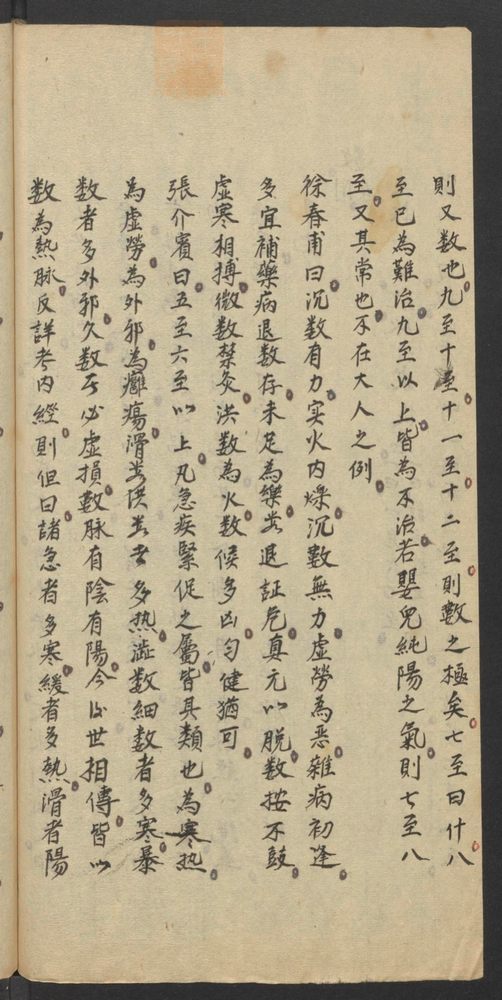 則又数也九至十至十一至十二至則數之極矣七至曰什八
至已為難治九至以上皆為不治若嬰兒純陽之氣則七至八
至又其常也不在大人之例
徐春甫曰沉数有力实火内燥沉數無力虛勞為惡雜病初逢
多宜補藥病退数存未足為樂数退証危真元以脱数按不鼓
虛寒相搏微数禁灸洪数為火数候多凶匀健猶可
張介賓曰五至六至以上凡急疾緊促之屬皆其類也為寒热
為虛勞為外邪為癰瘍滑数洪数者多热澁数細数者多寒暴
数者多外邪久数者必虛損數脉有陰有陽今後世相傳皆以
数為熱脉反詳考内經則但曰諸急者多寒緩者多熱滑者陽